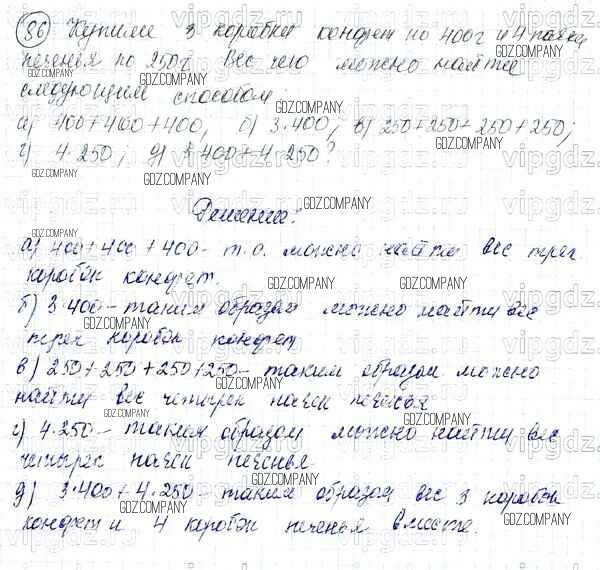 86 Купили 3 коробки конфет по 400г и 4 пачки
печенья по 250г Вес чего можно найти
следующим способом:
а) 400+400+400, б) 3·400; в) 250+250+250+250;
г) 4·250; д) 3·400+4·250?
Решение:
а) 400+400+400 - т.о. можно найти вес трех
коробок конфет.
б) 3·400 - таким образом можно найти вес
трех коробок конфет
в) 250+250+250+250 - таким образом можно
найти вес четырех пачек печенья
г) 4·250 - таким образом можно найти вес
четырех пачек печенья
д) 3·400+4·250 - таким образом вес 3 коробок
конфет и 4 коробок печенья вместе.